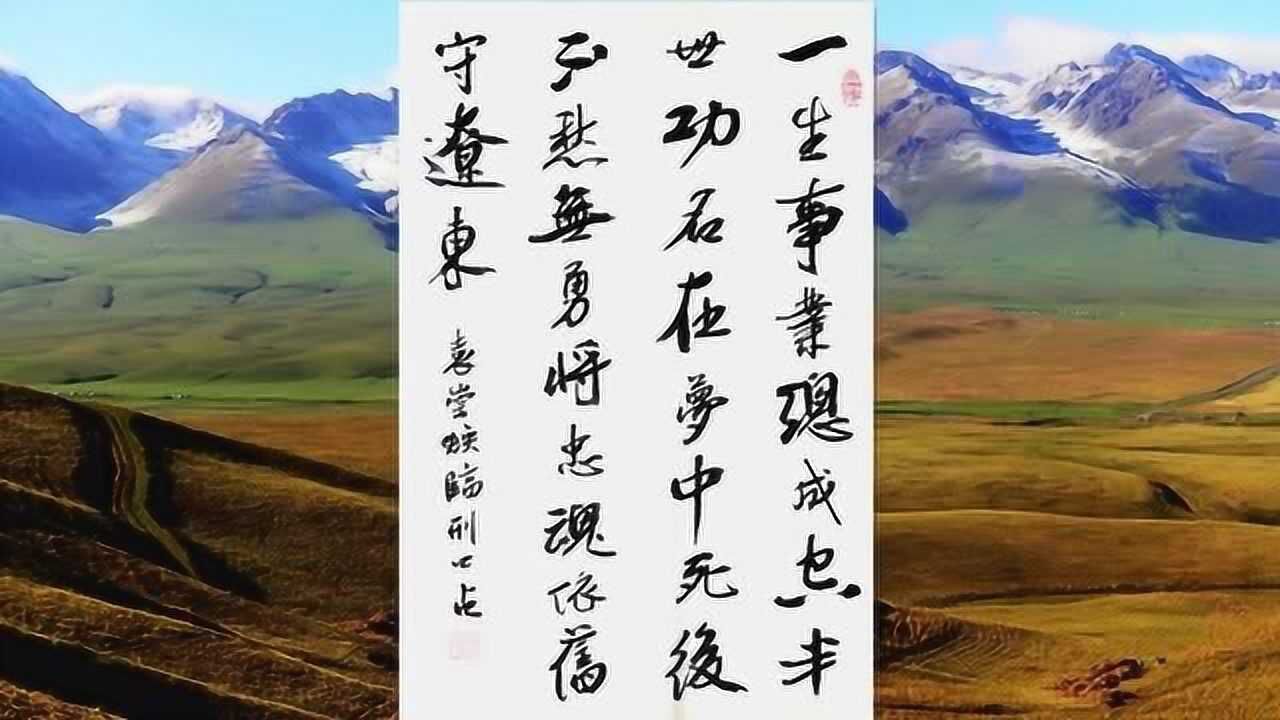 一生事業總成空半
世功名在夢中死後
不愁無勇將忠魂依舊
守遼東
袁崇焕臨刑口占